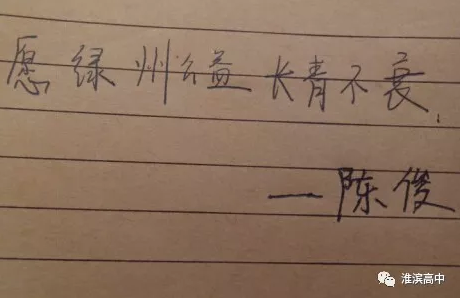 愿绿州公益长青不衰.
—陈俊
淮滨高中